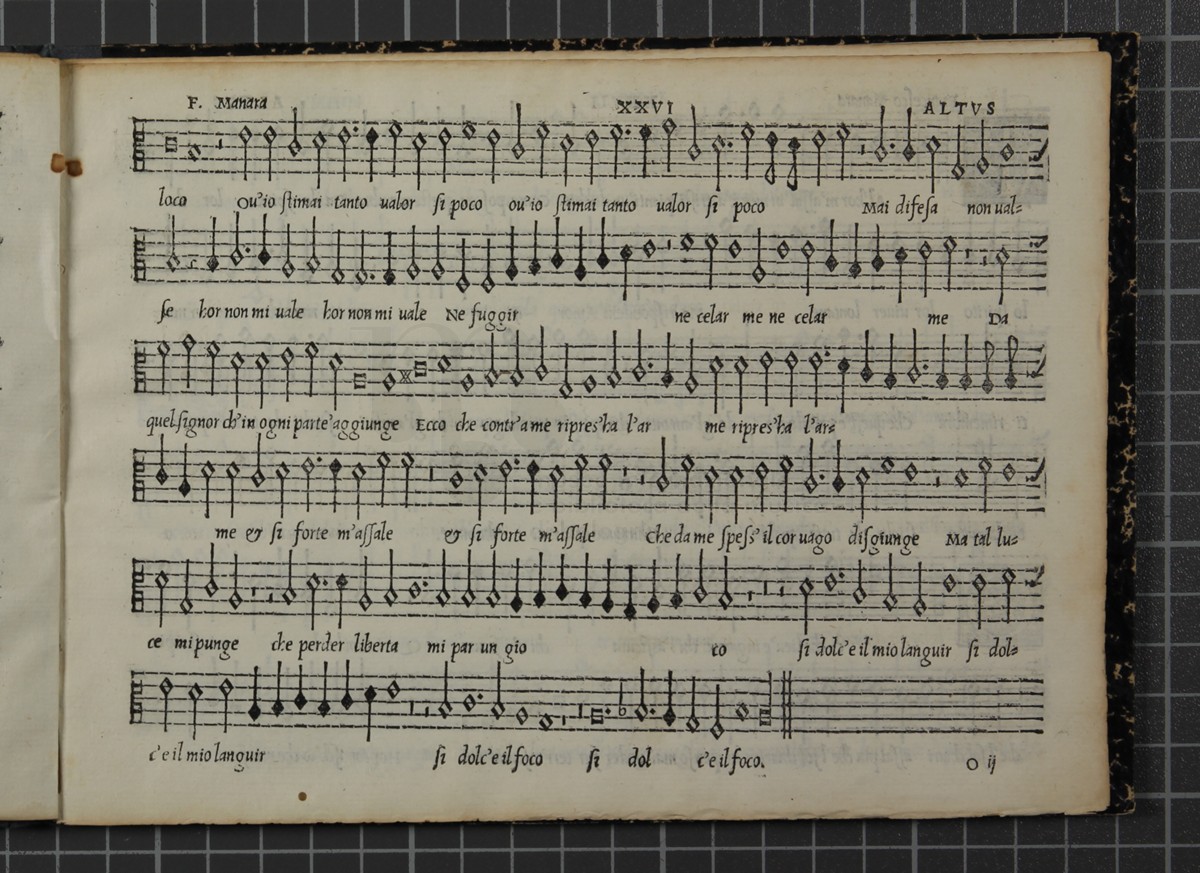 F. Manara XXVI ALTVS
loco Ou'io stimai tanto ualor si poco ou'io stimai tanto ualor si poco Mai difesa non ual=
se hor non mi uale hor non mi uale Ne fuggir ne celar me ne celar me Da
quel signor ch'in ogni parte'aggiunge Ecco che contr'a me ripres'ha l'ar me ripres'ha l'ar=
me & si forte m'assale & si forte m'assale Che da me spess' il cor uago disgiunge Ma tal lu=
ce mi punge che perder liberta mi par un gio co si dolc'e il mio languir si dol=
c'e il mio languir si dolc'e il foco si dol c'e il foco.
O ij